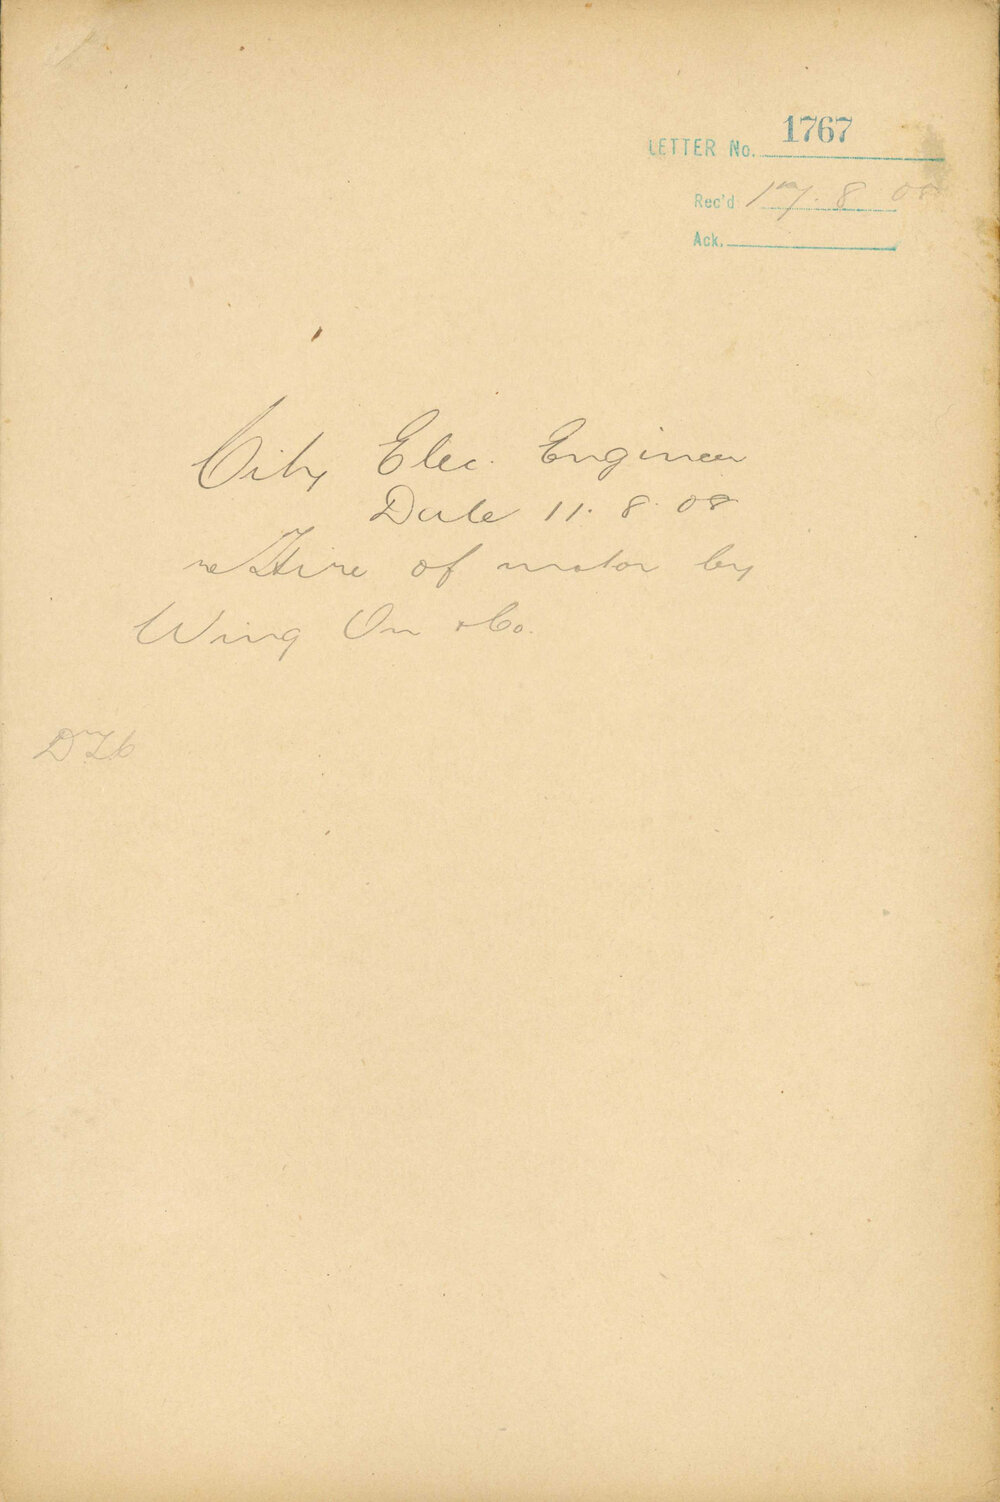 LETTER No. 1767
Rec'd 17.8.08
Ack.
City Elec. Engineer
Date 11.8.08
re Hire of motor by
Wing On & Co.